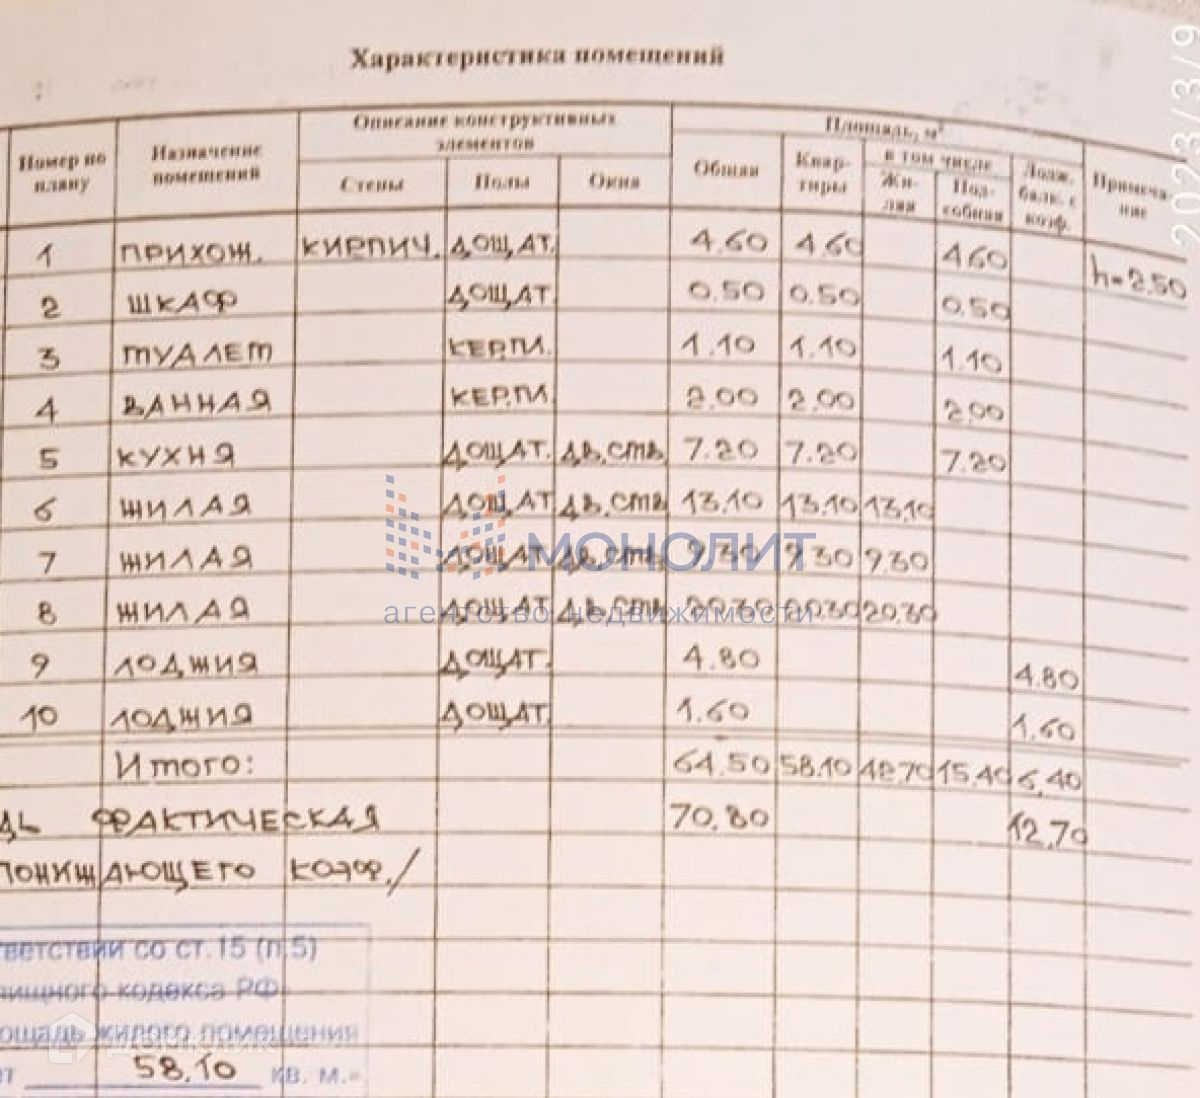 Характеристика помещений
2023/3/9
Номер по плану | Назначение помещений | Описание конструктивных элементов | Площадь, м² | Примечание
Стены | Полы | Окна | Общая | Квар-тиры | в том числе | Лодж. балк. с коэф.
Жи-лая | Под-собная
1 ПРИХОЖ. КИРПИЧ. ДОЩАТ. 4.60 4.60 4.60 h=2.50
2 ШКАФ ДОЩАТ 0.50 0.50 0.50
3 ТУАЛЕТ КЕР.ПЛ. 1.10 1.10 1.10
4 ВАННАЯ КЕР.ПЛ. 2.00 2.00 2.00
5 КУХНЯ ДОЩАТ. ДВ.СТВ. 7.20 7.20 7.20
6 ЖИЛАЯ ДОЩАТ ДВ.СТВ 13.10 13.10 13.10
7 ЖИЛАЯ ДОЩАТ ДВ.СТВ. 9.30 9.30 9.30
МОНОЛИТ
8 ЖИЛАЯ ДОЩАТ ДВ.СТВ. 20.30 20.30 20.30
агентство недвижимости
9 ЛОДЖИЯ ДОЩАТ. 4.80 4.80
10 ЛОДЖИЯ ДОЩАТ. 1.60 1.60
Итого: 64.50 58.10 42.70 15.40 6.40
ДЬ ФРАКТИЧЕСКАЯ 70.80 12.70
ПОНИЖАЮЩЕГО КОЭФ./
тветствии со ст.15 (п.5)
лищного кодекса РФ
ощадь жилого помещения
ет 58.10 кв. м.»